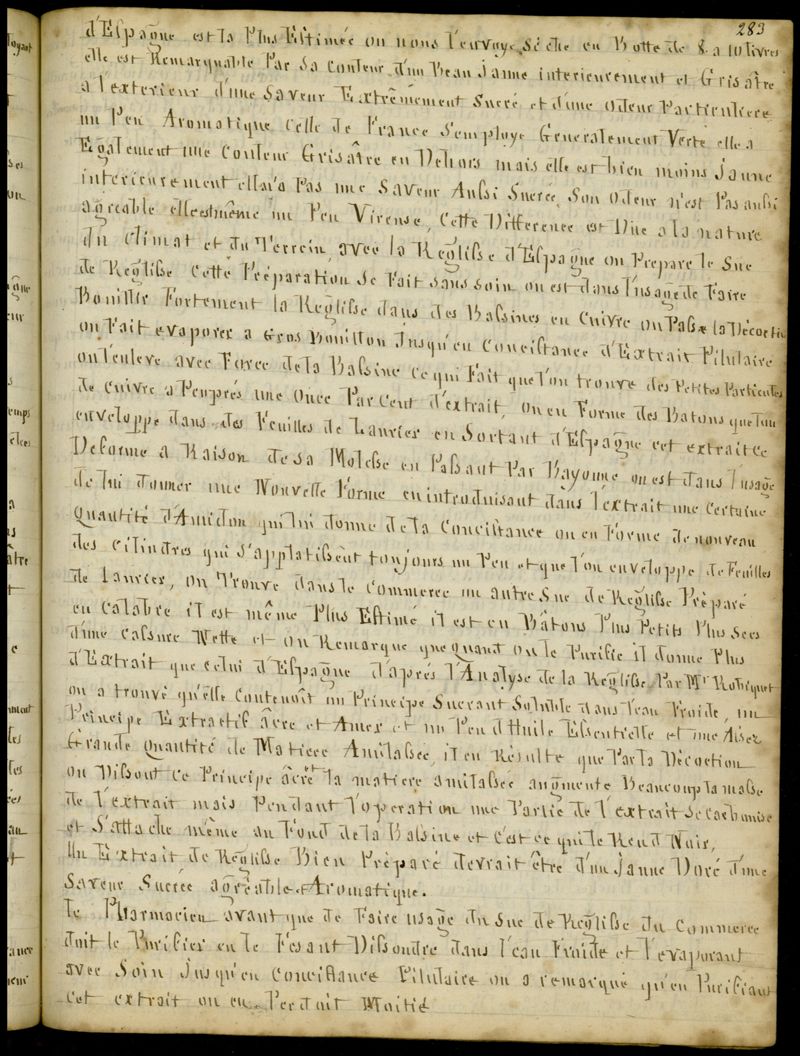 283
d'Espagne est la Plus Estimée on nous l'envoye Séche en Botte de 8. a 10 livres
elle est Remarquable Par Sa Couleur d'un Beau Jaune interieurement et Grisâtre
a l'exterieur d'une Saveur Extrêmement Sucré et d'une Odeur Particuliere
un Peu Aromatique Celle de France S'employe Generalement Verte elle a
Egalement une Couleur Grisâtre en Dehors mais elle est bien moins Jaune
interieurement ellen'a Pas une Saveur Aussi Sucrée, Son Odeur n'est Pas aussi
agreable elle est même un Peu Vireuse, Cette Difference est Due a la nature
du Climat et du Terrein, avec la Reglisse d'Espagne on Prepare le Suc
de Reglisse Cette Préparation Se Fait Sans Soin on est dans l'usage de Faire
Bouillir Fortement la Reglisse dans des Bassines en Cuivre on Passe la Décoction
on Fait evaporer a Gros Bouillon Jusqu'en Concistance d'Extrait Pilulaire
on l'enleve avec Force de la Bassine Ce qui Fait que l'on trouve des Petites Particules
de Cuivre a Peuprés une Once Par Cent d'extrait, On en Forme des Batons que l'on
enveloppe dans des Feuilles de Laurier en Sortant d'Espagne cet extrait Ce
Deforme a Raison de Sa Molesse en Passant Par Bayonne on est dans l'usage
de lui donner une Nouvelle Forme en introduisant dans l'extrait une Certaine
Quantité d'Amidon qui lui donne de la Concistance on en Forme de nouveau
des Cilindres qui S'applatissent toujours un Peu et que l'on enveloppe de Feuilles
de Laurier, On Trouve dans le Commerce un autre Suc de Reglisse Préparé
en Calabre il est même Plus Estimé il est en Bâtons Plus Petits Plus Secs
d'une Casure Nette et on Remarque que quand on le Purifie il donne Plus
d'Extrait que celui d'Espagne d'aprés l'Analyse de la Reglisse Par Mr Robiquet
on a trouvé qu'elle Contenoit un Principe Sucrant Soluble dans l'eau Froide, un
Principe Extractif âcre et Amer et un Peu d'Huile Essentielle et une Assez
Grande Quantité de Matiere Amilassée, il en Résulte que Par la Décoction
on Dissout Ce Principe âcre et la matiere amilassée augmente Beaucoup la masse
de l'extrait mais Pendant l'operation une Partie de l'extrait Se Carbonise
et S'attache même au Fond de la Bassine et C'est ce qui le Rend Noir,
Un Extrait de Reglisse Bien Préparé devrait être d'un Jaune Doré d'une
Saveur Sucrée agréable et Aromatique.
Le Pharmacien avant que de Faire usage du Suc de Reglisse du Commerce
doit le Purifier en le Fesant Dissoudre dans l'eau Froide et l'evaporant
avec Soin Jusqu'en Concistance Pilulaire on a remarqué qu'en Purifiant
cet extrait on en Perdait Moitié